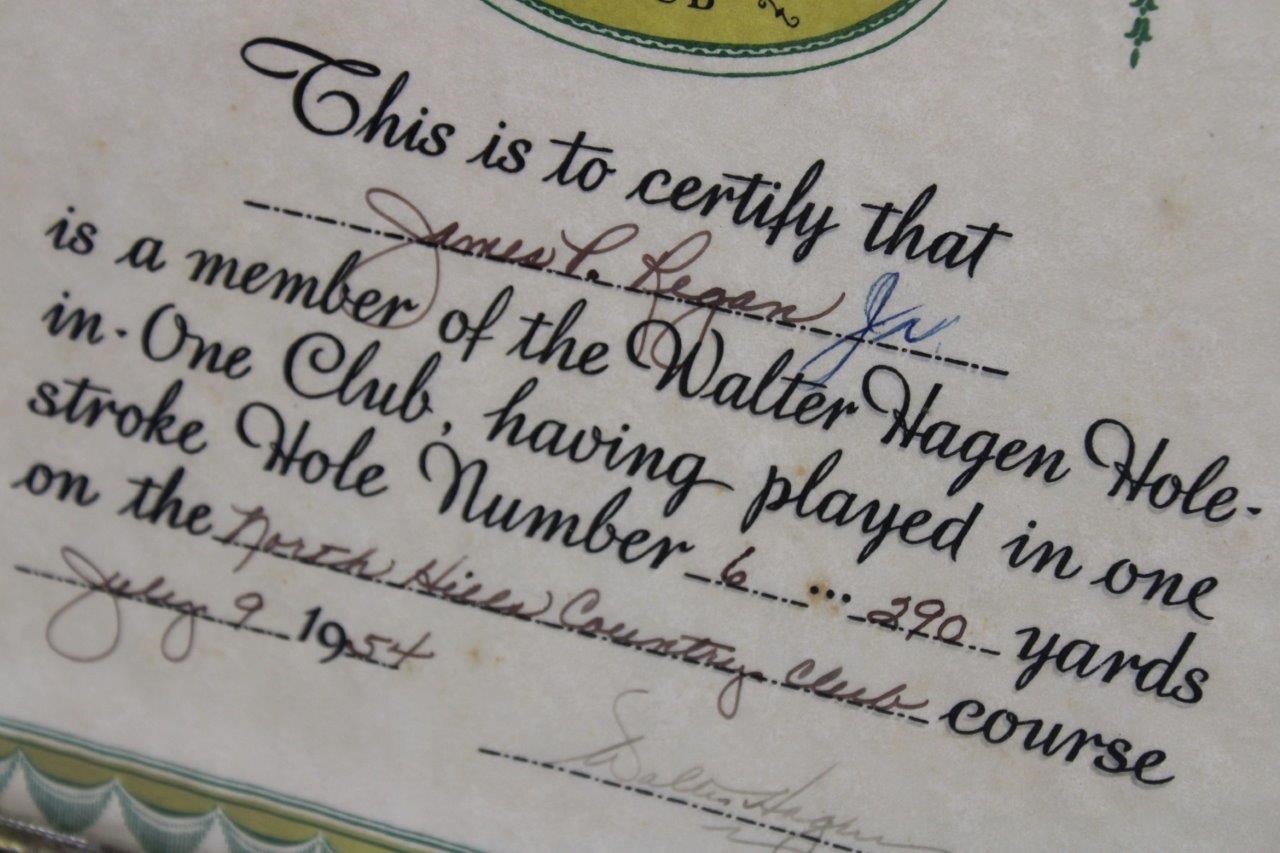 This is to certify that
James P. Regan Jr
is a member of the Walter Hagen Hole-
in-One Club, having played in one
stroke Hole Number 6 ... 290 yards
on the North Hills Country Club course
July 9 1954
Walter Hagen